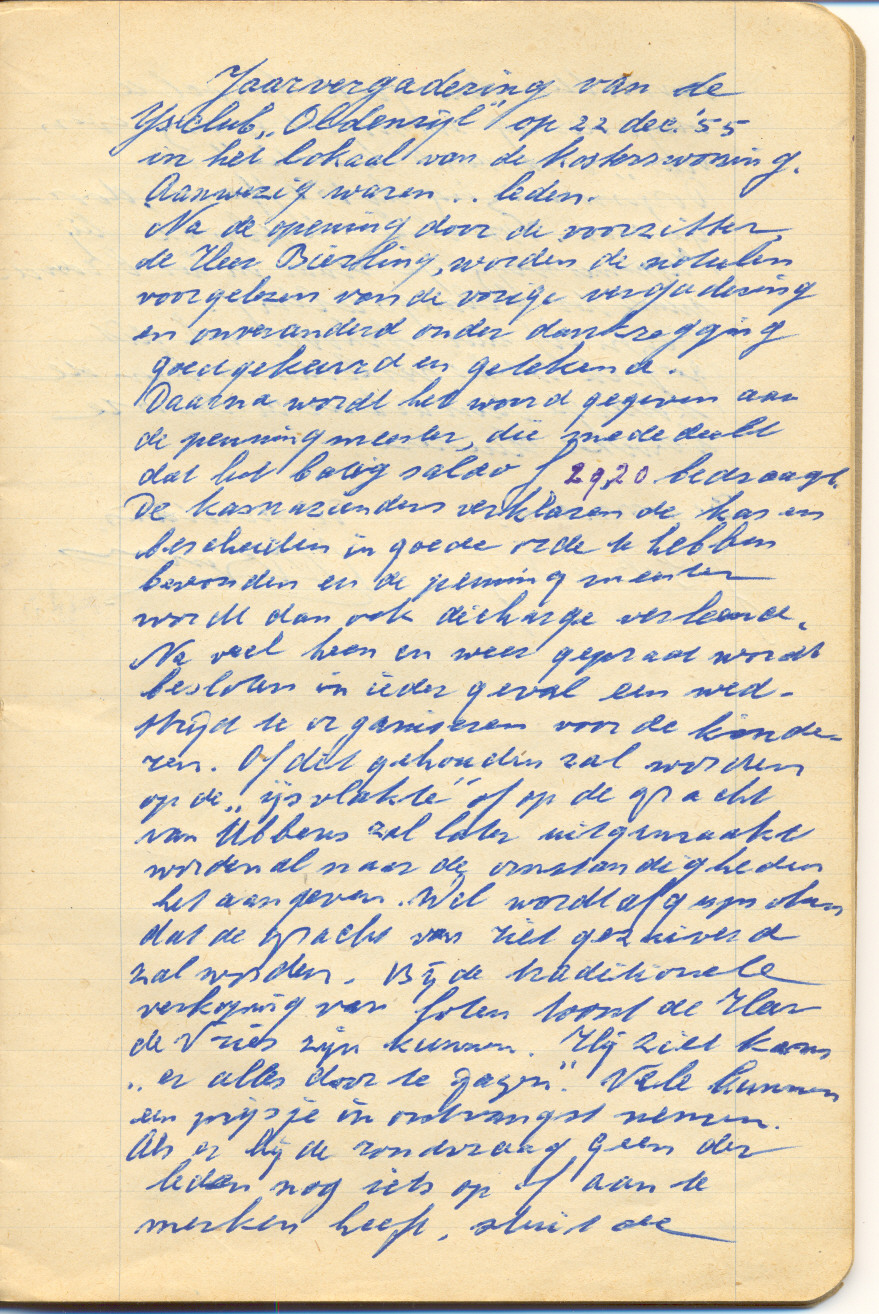 Jaarvergadering van de
Ysclub „Oldenzijl" op 22 dec. '55
in het lokaal van de kosterswoning.
Aanwezig waren .. leden.
Na de opening door de voorzitter,
de Heer Bierling, worden de notulen
voorgelezen van de vorige vergadering
en onveranderd onder dankzegging
goedgekeurd en getekend.
Daarna wordt het woord gegeven aan
de penningmeester, die mededeelt
dat het batig saldo f 29,20 bedraagt.
De kasnazienders verklaren de kas en
bescheiden in goede orde te hebben
bevonden en de penningmeester
wordt dan ook dicharge verleend.
Na veel heen en weer gepraat wordt
besloten in ieder geval een wed-
strijd te organiseren voor de kinde-
ren. Of dit gehouden zal worden
op de „ijsvlakte" of op de gracht
van Ubbens zal later uitgemaakt
worden al naar de omstandigheden
het aangeven. Wel wordt afgesproken
dat de gracht van riet gezuiverd
zal worden. Bij de traditionele
verkoping van loten toont de Heer
de Vries zijn kunnen. Hij ziet kans
„er alles door te jagen". Vele kunnen
een prijsje in ontvangst nemen.
Als er bij de rondvraag geen der
leden nog iets op of aan te
merken heeft, sluit de